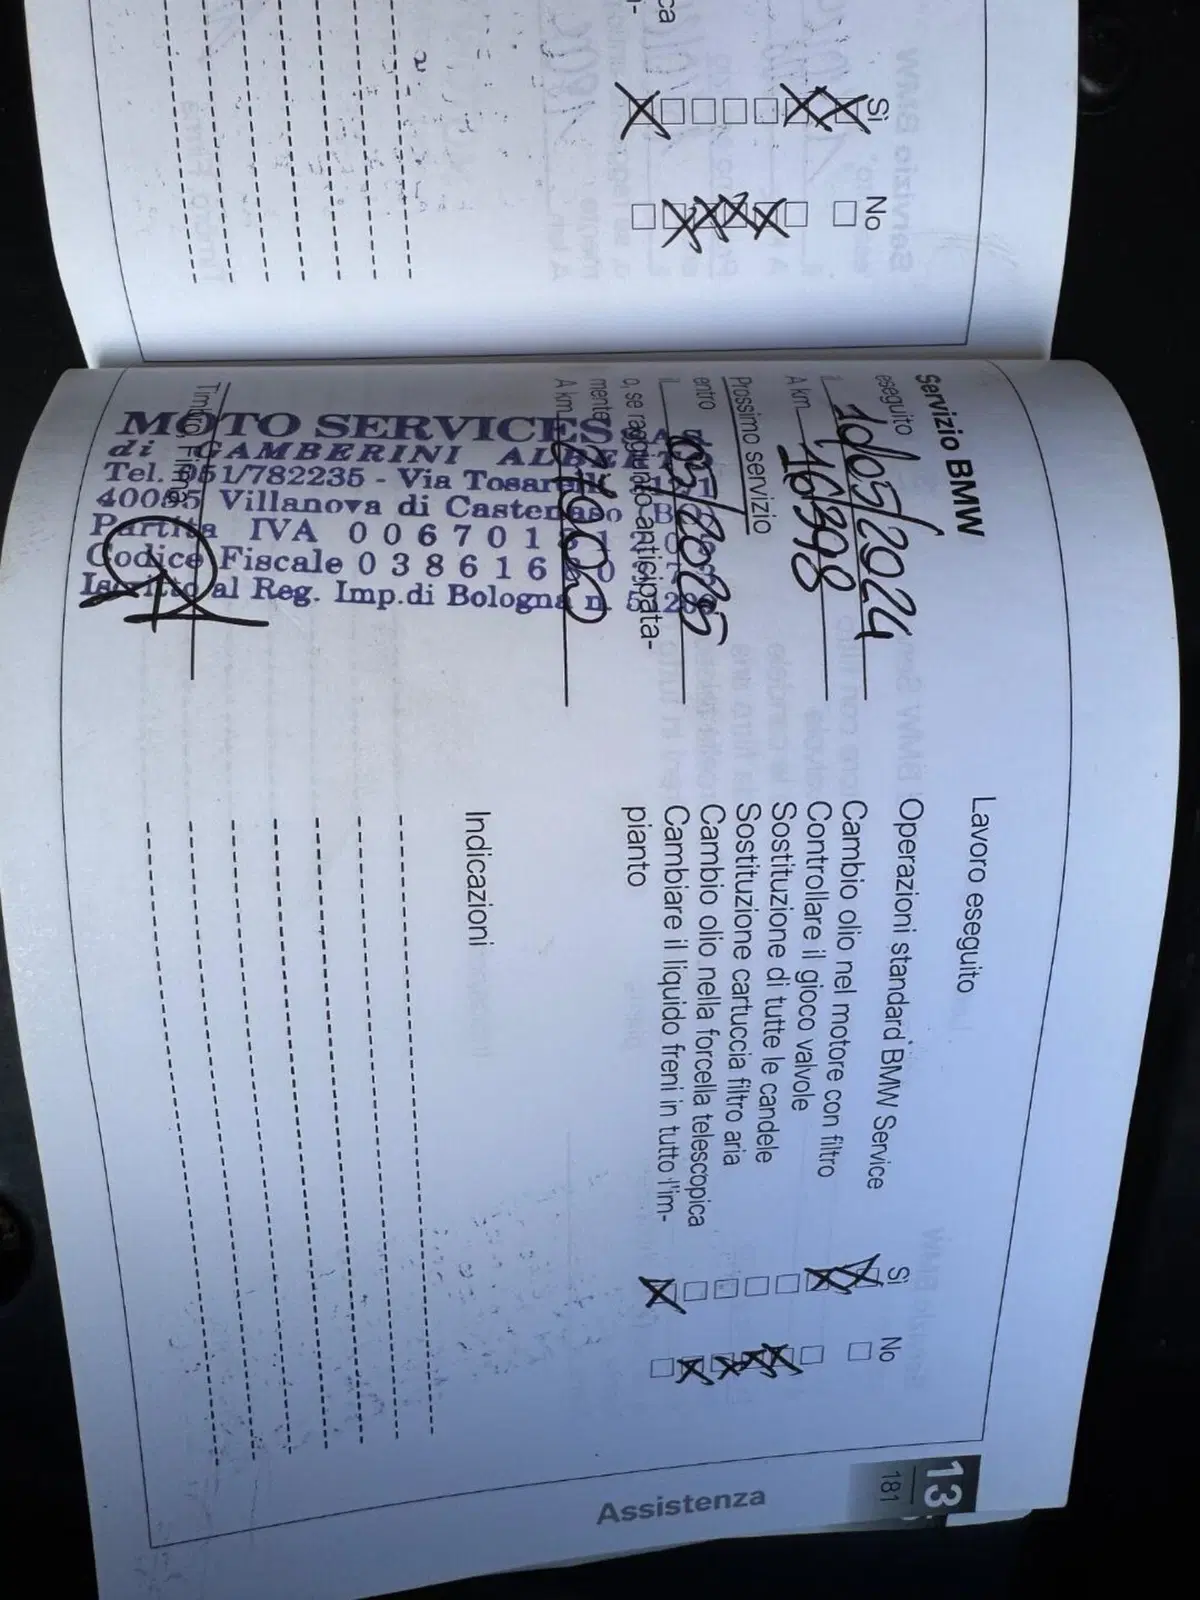 Sì No
ca
Servizio BMW
eseguito
il 10/05/2024
A km 16398
Prossimo servizio
entro
il 05/2025
o, se raggiunto anticipata-
mente
A km
MOTO SERVICES
di GAMBERINI
Tel. 051/782235 - Via
40055 Villanova di Castenaso
Partita IVA
Codice Fiscale
Iscritto al Reg. Imp.di Bologna n.
Timbro, Firma
Lavoro eseguito
Operazioni standard BMW Service
Cambio olio nel motore con filtro
Controllare il gioco valvole
Sostituzione di tutte le candele
Sostituzione cartuccia filtro aria
Cambio olio nella forcella telescopica
Cambiare il liquido freni in tutto l'im-
pianto
Indicazioni
Sì No
13
181
Assistenza